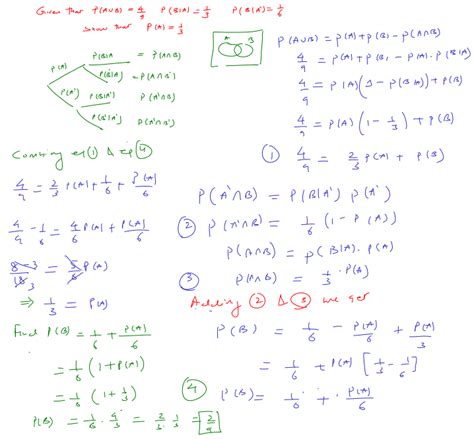 Given that P(A∪B)=4/9 P(B|A)=1/3 P(B|A')=1/6
Show that P(A)=1/3
P(A)
P(B|A = P(A∩B)
P(B'|A) = P(A∩B')
P(A')
P(B|A') P(A'∩B)
P(B'|A' P(A'∩B')
A B
P(A∪B) = P(A)+P(B)-P(A∩B)
4/9 = P(A)+P(B)-P(A).P(B|A)
4/9 = P(A)(1-P(B|A))+P(B)
4/9 = P(A)(1-1/3)+P(B)
① 4/9 = 2/3 P(A) + P(B)
P(A'∩B) = P(B|A') P(A')
② P(A'∩B) = 1/6 (1-P(A))
P(A∩B) = P(B|A).P(A)
③ P(A∩B) = 1/3 .P(A)
Adding ② & ③ we get
P(B) = 1/6 - P(A)/6 + P(A)/3
= 1/6 + P(A) [1/3-1/6]
④ P(B) = 1/6 + P(A)/6
Combing eq ① & eq ④
4/9 = 2/3 P(A)+1/6+P(A)/6
4/9-1/6 = 4/6 P(A)+P(A)/6
⇒ 1/3 = P(A)
Find P(B)=1/6+P(A)/6
=1/6(1+P(A))
=1/6(1+1/3)
P(B)=1/6.4/3=2/3.1/3=2/9